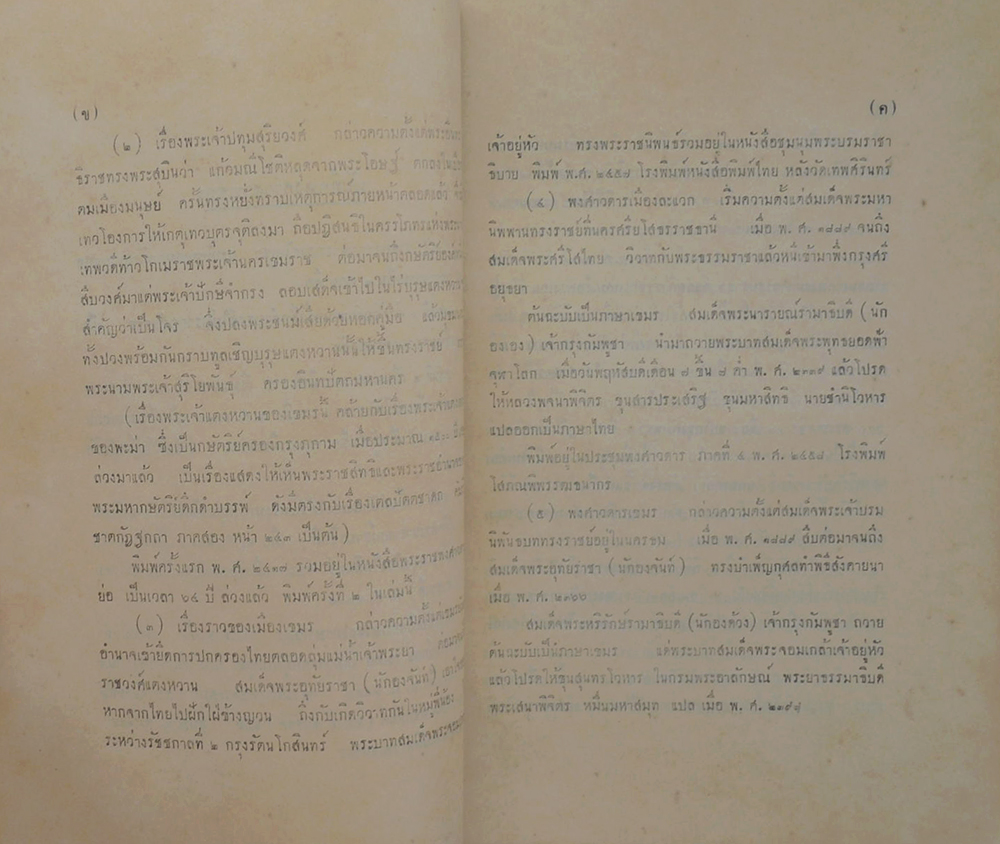 (ข)
(๒) เรื่องพระเจ้าปทุมสุริยวงศ์ กล่าวความตั้งแต่พระอินท
ธิราชทรงพระสุบินว่า แก้วมณีโชติหลุดจากพระโอษฐ์ ตกลงใน
ดมเมืองมนุษย์ ครั้นทรงหยั่งทราบเหตุการณ์ภายหน้าตลอดแล้ว
เทวโองการให้เกตุเทวบุตรจุติลงมา ถือปฏิสนธิในครรภ์โทรแห่งพระ
เทพวดีท้าวโกเมราชพระเจ้านครเขมราช ต่อมาจนถึงกษัตริย์องค์
สืบวงศ์มาแต่พระเจ้าปักษีจำกรง ลอบเสด็จเข้าไปในไร่บุรุษแตงหวาน
สำคัญว่าเป็นโจร จึงปลงพระชนม์เสียด้วยหอกคู่มือ แล้ว
ทั้งปวงพร้อมกันกราบทูลเชิญบุรุษแตงหวานนั้นให้ขึ้นทรงราชย์
พระนามพระเจ้าสุริโยพันธุ์ ครองอินทปัตถมหานคร
(เรื่องพระเจ้าแตงหวานของเขมรนี้ คล้ายกับเรื่องพระเจ้าแตง
ของพะม่า ซึ่งเป็นกษัตริย์ครองกรุงภุกาม เมื่อประมาณ ๑๕๐๐
ล่วงมาแล้ว เป็นเรื่องแสดงให้เห็นพระราชสิทธิและพระราชอำนาจ
พระมหากษัตริย์ดึกดำบรรพ์ ดังมีตรงกับเรื่องเตลปัตตชาดก
ชาตกัฏฐกถา ภาคสอง หน้า ๒๔๓ เป็นต้น)
พิมพ์ครั้งแรก พ.ศ. ๒๔๑๗ รวมอยู่ในหนังสือพระราชพงศาวดาร
ย่อ เป็นเวลา ๖๔ ปี ล่วงแล้ว พิมพ์ครั้งที่ ๒ ในเล่มนี้
(๓) เรื่องราวของเมืองเขมร กล่าวความตั้งแต่เขมร
อำนาจเข้ายึดการปกครองไทยตลอดลุ่มแม่น้ำเจ้าพระยา ต่อมา
ราชวงศ์แตงหวาน สมเด็จพระอุทัยราชา (นักองจันท์) เอาใจ
หากจากไทยไปฝักใฝ่ข้างญวน ถึงกับเกิดวิวาทกันในหมู่พี่น้อง
ระหว่างรัชชกาลที่ ๒ กรุงรัตนโกสินทร์ พระบาทสมเด็จพระจอม
(ค)
เจ้าอยู่หัว ทรงพระราชนิพนธ์รวมอยู่ในหนังสือชุมนุมพระบรมราชา
ธิบาย พิมพ์ พ.ศ. ๒๔๕๗ โรงพิมพ์หนังสือพิมพ์ไทย หลังวัดเทพศิรินทร์
(๔) พงศาวดารเมืองละแวก เริ่มความตั้งแต่สมเด็จพระมหา
นิพพานทรงราชย์ที่นครศรียโสธรราชธานี เมื่อ พ. ศ. ๑๘๘๙ จนถึง
สมเด็จพระศรีไสไทย วิวาทกับพระธรรมราชาแล้วหนีเข้ามาพึ่งกรุงศรี
อยุธยา
ต้นฉะบับเป็นภาษาเขมร สมเด็จพระนารายณ์รามาธิบดี (นัก
องเอง) เจ้ากรุงกัมพูชา นำมาถวายพระบาทสมเด็จพระพุทธยอดฟ้า
จุฬาโลก เมื่อวันพฤหัสบดีเดือน ๘ ขึ้น ๘ ค่ำ พ. ศ. ๒๓๓๙ แล้วโปรด
ให้หลวงพจนาพิจิตร ขุนสารประเสริฐ ขุนมหาสิทธิ นายชำนิโวหาร
แปลออกเป็นภาษาไทย
พิมพ์อยู่ในประชุมพงศาวดาร ภาคที่ ๔ พ. ศ. ๒๔๕๘ โรงพิมพ์
โสภณพิพรรฒธนากร
(๕) พงศาวดารเขมร กล่าวความตั้งแต่สมเด็จพระเจ้าบรม
นิพันธบททรงราชย์อยู่ในนครธม เมื่อ พ. ศ. ๑๘๘๙ สืบต่อมาจนถึง
สมเด็จพระอุทัยราชา (นักองจันท์) ทรงบำเพ็ญกุศลทำพิธีสังคายนา
เมื่อ พ. ศ. ๒๓๖๖
สมเด็จพระหริรักษ์รามาธิบดี (นักองด้วง) เจ้ากรุงกัมพูชา ถวาย
ต้นฉะบับเป็นภาษาเขมร แด่พระบาทสมเด็จพระจอมเกล้าเจ้าอยู่หัว
แล้วโปรดให้ขุนสุนทรโวหาร ในกรมพระอาลักษณ์ พระยาธรรมาธิบดี
พระเสนาพิจิตร หมื่นมหาสมุท แปล เมื่อ พ. ศ. ๒๓๙๘